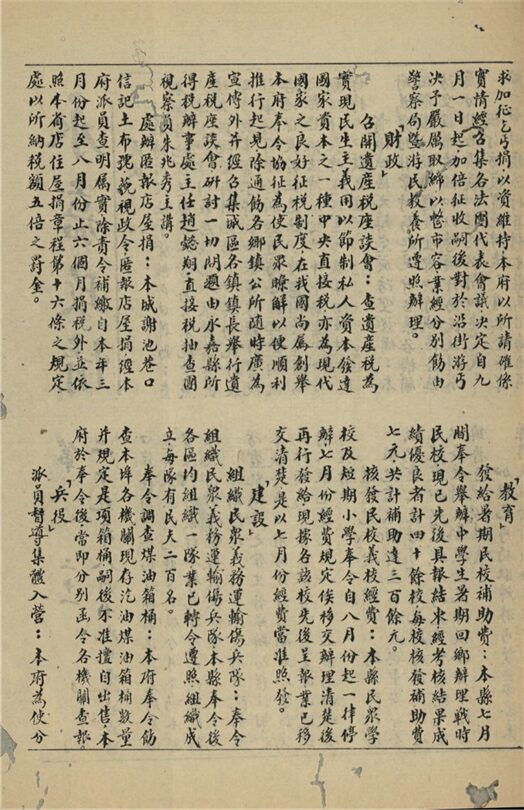 求加征乞丐捐以資維持本府以所請確係
實情經召集各法團代表會議决定自九
月一日起加倍征收嗣後對於沿街游丐
决予嚴厲取締以整市容業經分别飭由
警察局暨游民教養所遵照辦理。
「財政」
召開遺産税座談會：查遺産税為
實現民生主義用以節制私人資本發達
國家資本之一種中央直接税亦為現代
國家之良好征税制度在我國尚屬創舉
本府奉令協征為使民衆瞭解以便順利
推行起見除通飭各鄉鎮公所隨時廣為
宣傳外并經召集城區各鎮鎮長舉行遺
産税座談會研討一切問題由永嘉縣所
得税辦事處主任趙懿翔直接税抽查團
視察員朱兆秀主講。
處辦匿報店屋捐：本城謝池巷口
信記土布號藐視政令匿報店屋捐經本
府派員查明屬實除責令補繳自本年三
月份起至八月份止六個月捐税外並依
照本省店住屋捐章程第十六條之規定
處以所納税額五倍之罰金。
「教育」
發給暑期民校補助費：本縣七月
間奉令舉辦中學生暑期回鄉辦理戰時
民校現已先後具報結束經考核結果成
績優良者計四十餘校每校核發補助費
七元共計補助達三百餘元。
核發民校義校經費：本縣民衆學
校及短期小學奉令自八月份起一律停
辦七月份經費規定俟移交辦理清楚後
再行發給現據各該校先後呈報業已移
交清楚是以七月份經費當准照發。
「建設」
組織民衆義務運輸傷兵隊：奉令
組織民衆義務運輸傷兵隊本縣奉令後
各區均組織一隊業已轉令遵照組織成
立每隊有民夫二百名。
奉令調查煤油箱桶：本府奉令飭
查本埠各機關現存汽油煤油箱桶數量
并規定是項箱桶嗣後不准擅自出售本
府於奉令後當即分别函令各機關查報
「兵役」
派員督導集體入營：本府為使分